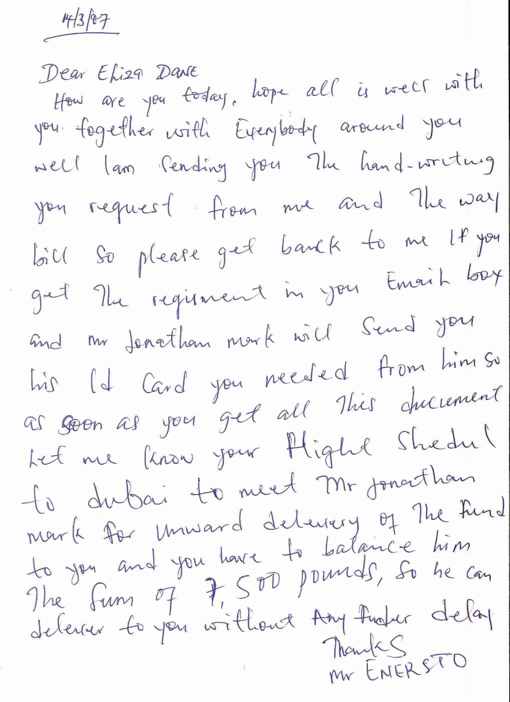 14/3/07
Dear Eliza Dave
How are you today, hope all is well with
you together with Everybody around you
well I am Sending you The hand-writing
you request from me and The way
bill So please get banck to me If you
get The reqisment in you Email box
and mr Jonathan mark will Send you
his Id Card you needed from him so
as soon as you get all This ducument
Let me know your Flight Shedul
to dubai to meet Mr Jonathan
mark for unward delevery of The fund
to you and you have to balance him
The Sum of 7,500 pounds, So he can
delever to you without Any futher delay
Thanks
Mr ENERSTO